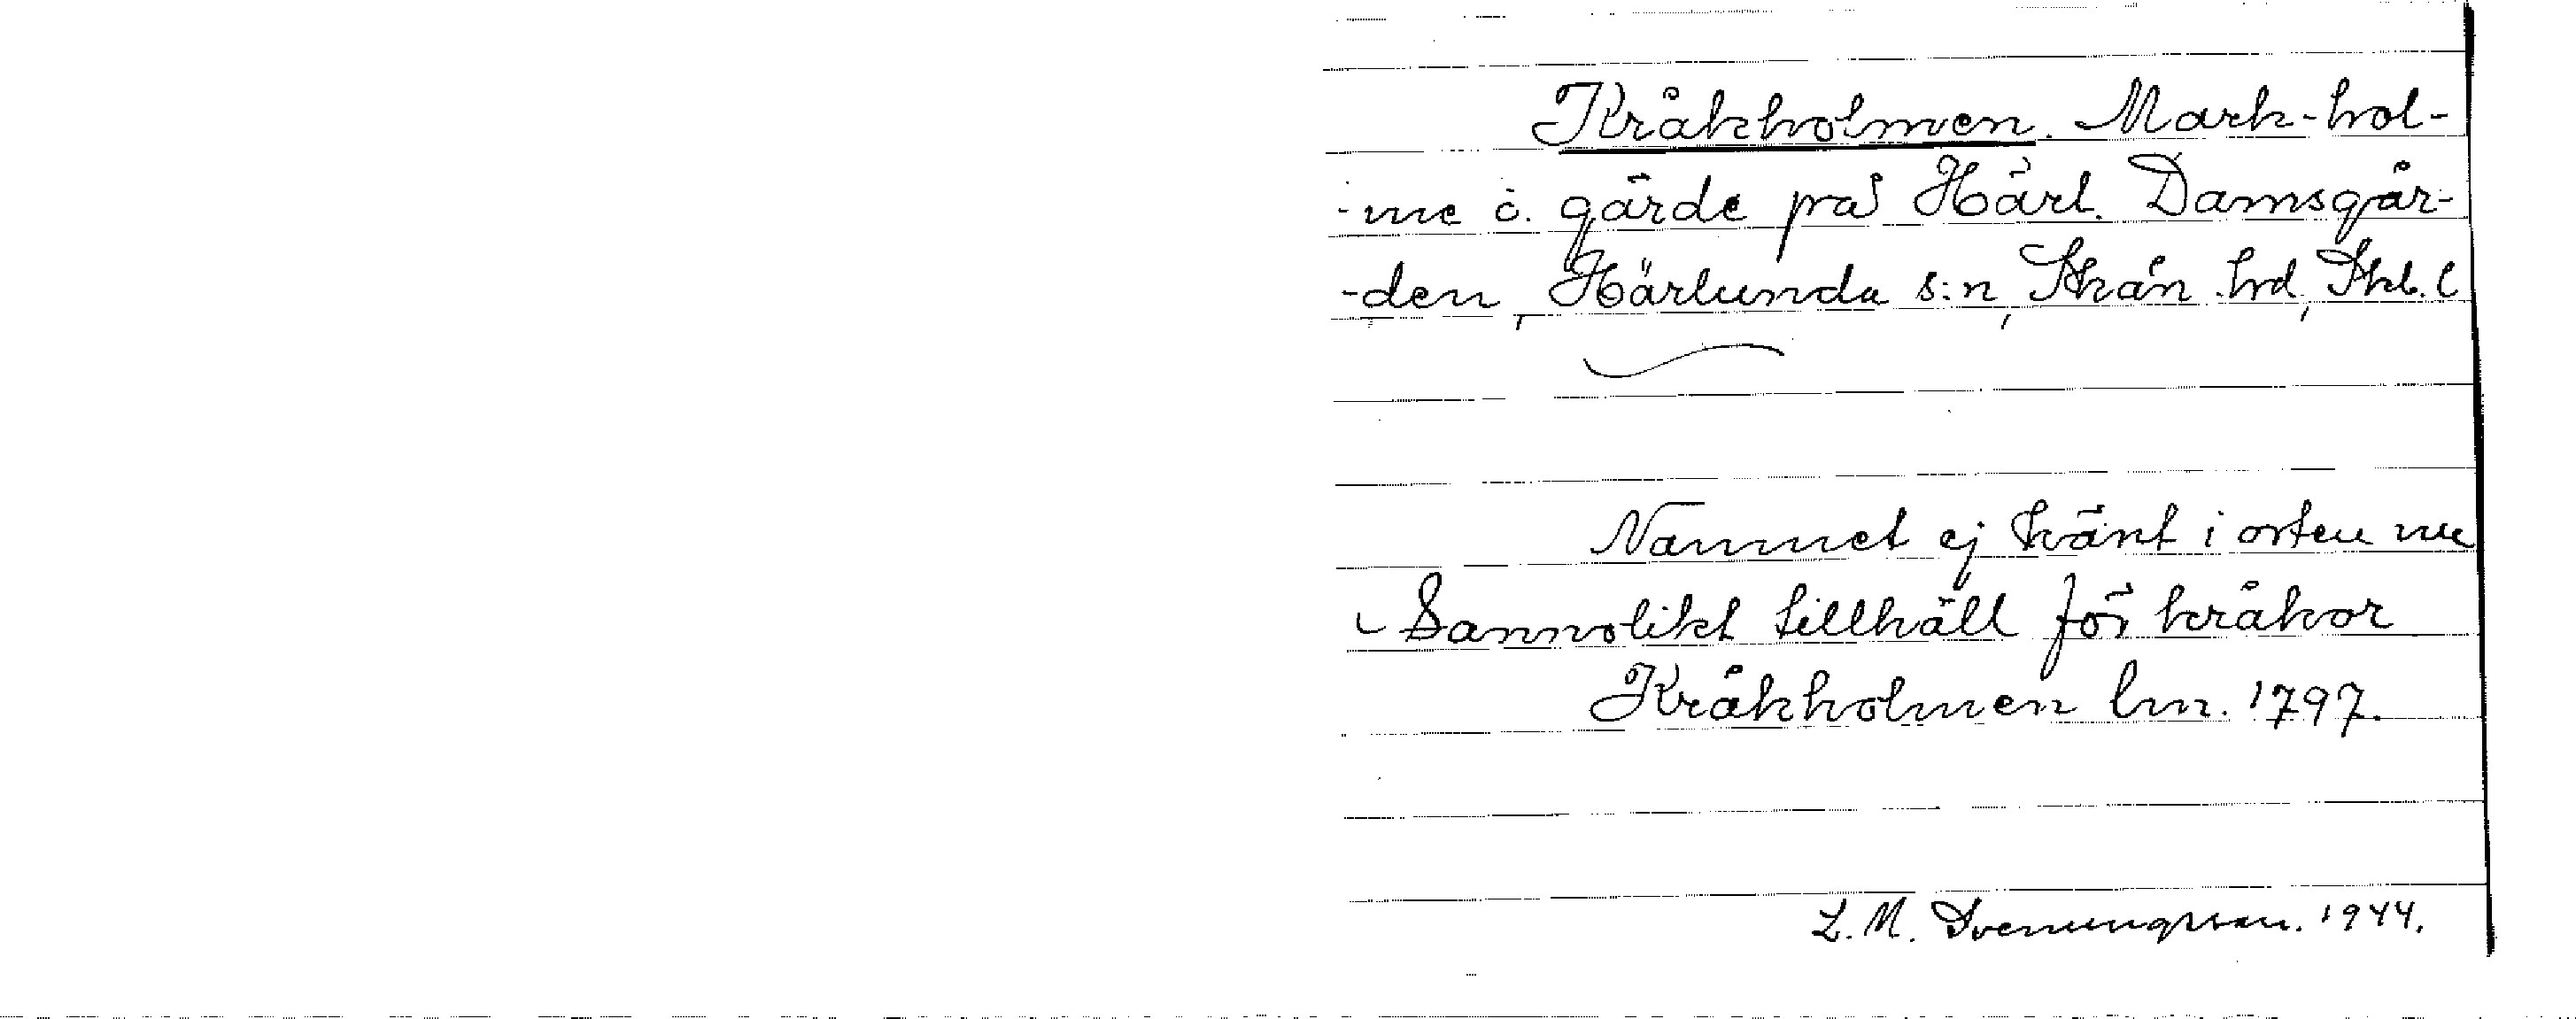 Kråkholmen. Mark-hol-
-me i gärde på Härl. Damsgår-
-den, Härlunda s:n, Skån. hd, Skb. l
Namnet ej känt i orten nu
Sannolikt tillhåll för kråkor
Kråkholmen lm. 1797.
L. M. Svenungsson. 1944.